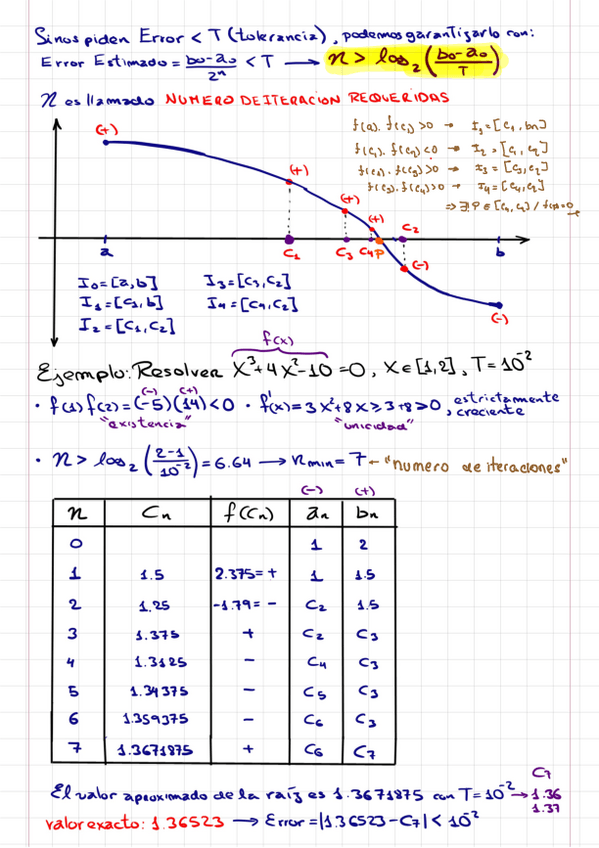 Si nos piden Error < T (tolerancia), podemos garantizarlo con:
Error Estimado = (b₀-a₀)/2ⁿ < T → n > log₂((b₀-a₀)/T)
n es llamado NUMERO DE ITERACION REQUERIDAS
(+)
f(a).f(c₁)>0 → I₁=[c₁,bn]
f(c₁).f(c₂)<0 → I₂=[c₁,c₂]
f(c₂).f(c₃)>0 → I₃=[c₃,c₂]
f(c₃).f(c₄)>0 → I₄=[c₄,c₂]
⇒ ∃!P∈[c₄,c₂] / f(p)=0
(+)
(+)
(+)
C₂
a
C₁
C₃
C₄
P
b
(-)
(-)
I₀=[a,b]
I₃=[C₃,C₂]
I₁=[C₁,b]
I₄=[C₄,C₂]
I₂=[C₁,C₂]
f(x)
Ejemplo: Resolver x³+4x²-10=0, x∈[1,2], T=10⁻²
(-) (+)
• f(1)f(2)=(-5)(14)<0 • f'(x)=3x²+8x≥3+8≥0, estrictamente creciente
"existencia" "unicidad"
• n > log₂((2-1)/10⁻²)=6.64 → nmin=7 ← "numero de iteraciones"
(-) (+)
n Cn f(Cn) an bn
0 1 2
1 1.5 2.375=+ 1 1.5
2 1.25 -1.79=- C₂ 1.5
3 1.375 + C₂ C₃
4 1.3125 - C₄ C₃
5 1.34375 - C₅ C₃
6 1.359375 - C₆ C₃
7 1.3671875 + C₆ C₇
C₇
El valor aproximado de la raíz es 1.3671875 con T=10⁻² → 1.36
1.37
valor exacto: 1.36523 → Error=|1.36523-C₇|<10⁻²